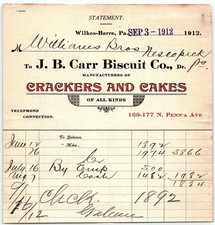 STATEMENT.
Wilkes-Barre, Pa., SEP 3 - 1912 1912.
M Williams Bros
Nescopeck Pa
To J. B. Carr Biscuit Co., Dr.
MANUFACTURERS OF
CRACKERS AND CAKES
OF ALL KINDS
TELEPHONE CONNECTION.
169-177 N. PENN'A AVE
To Balance,
June 12 " Mdse., 1892
1974 3866
July 16 By Cr
Aug 7 Cash 1482 1982
1884
Check 1892